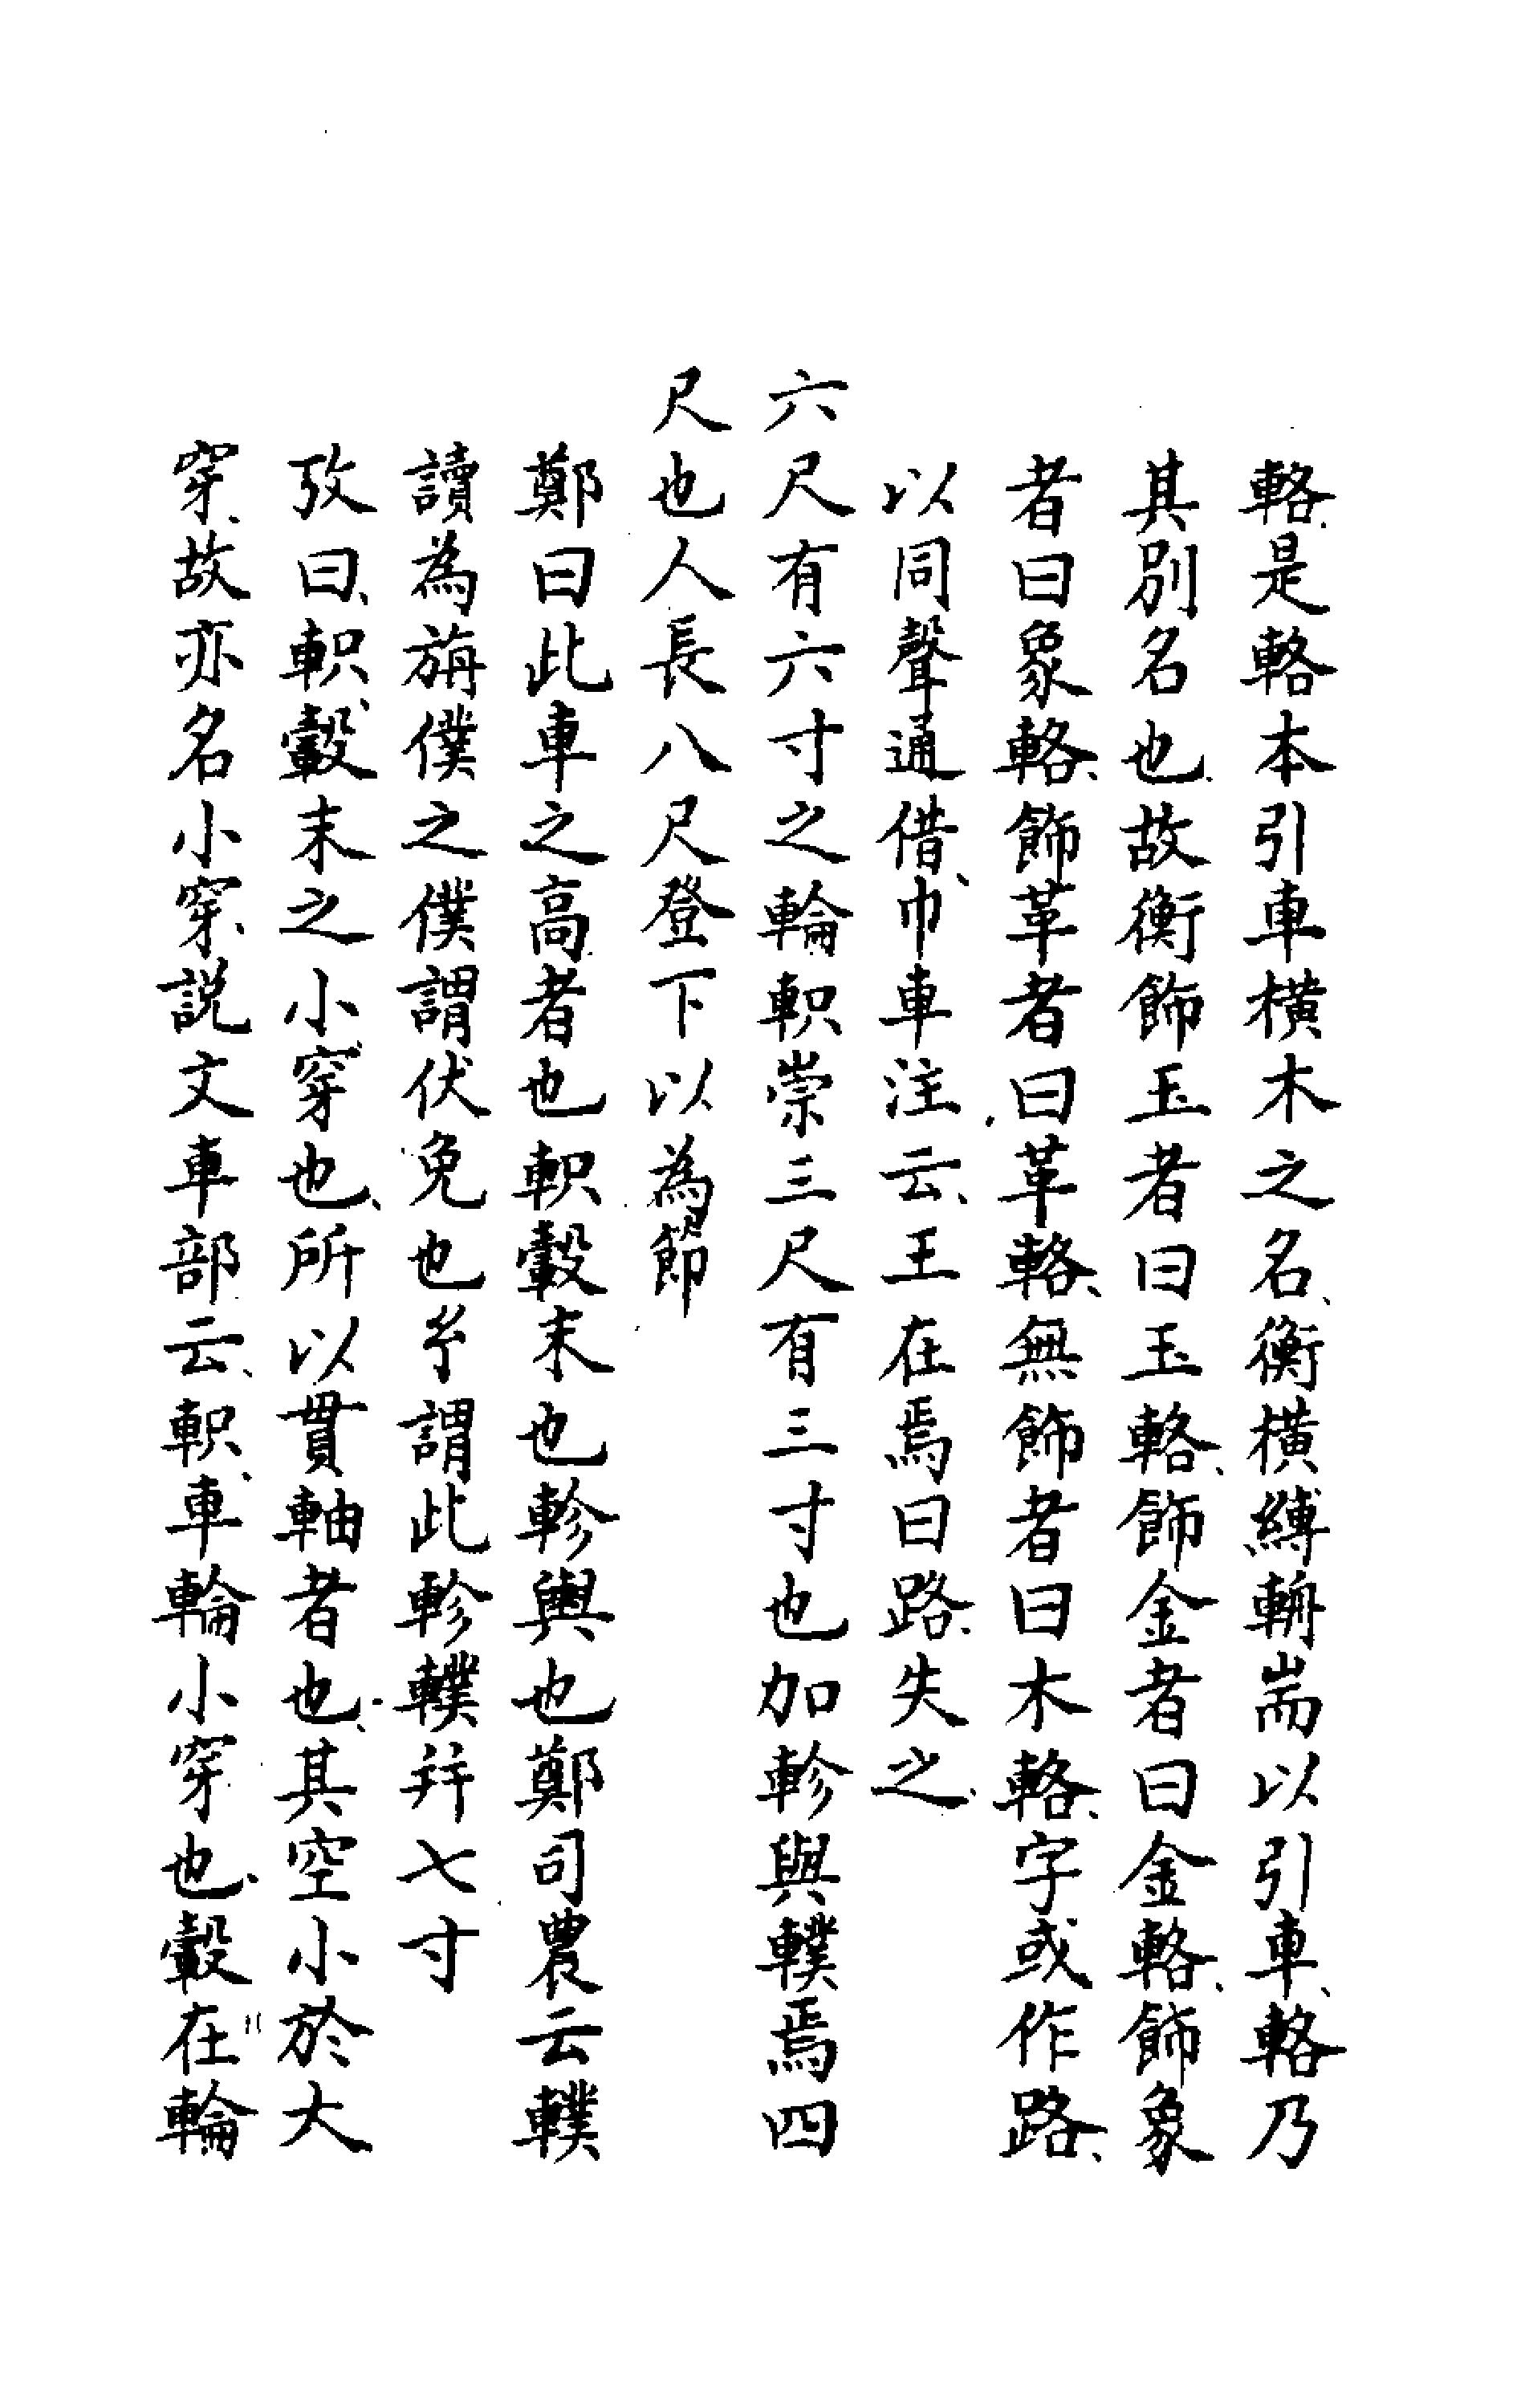 輅、是輅本引車橫木之名、衡橫縛輈耑以引車、輅乃
其別名也、故衡飾玉者曰玉輅、飾金者曰金輅、飾象
者曰象輅、飾革者曰革輅、無飾者曰木輅、字或作路、
以同聲通借、巾車注云、王在焉曰路、失之、
六尺有六寸之輪軹崇三尺有三寸也加軫與轐焉四
尺也人長八尺登下以為節
鄭曰此車之高者也軹轂末也軫輿也鄭司農云轐
讀為旃僕之僕謂伏兔也玄謂此軫轐并七寸
攷曰、軹、轂末之小穿也、所以貫軸者也、其空小於大
穿、故亦名小穿、説文車部云、軹、車輪小穿也、轂在輪